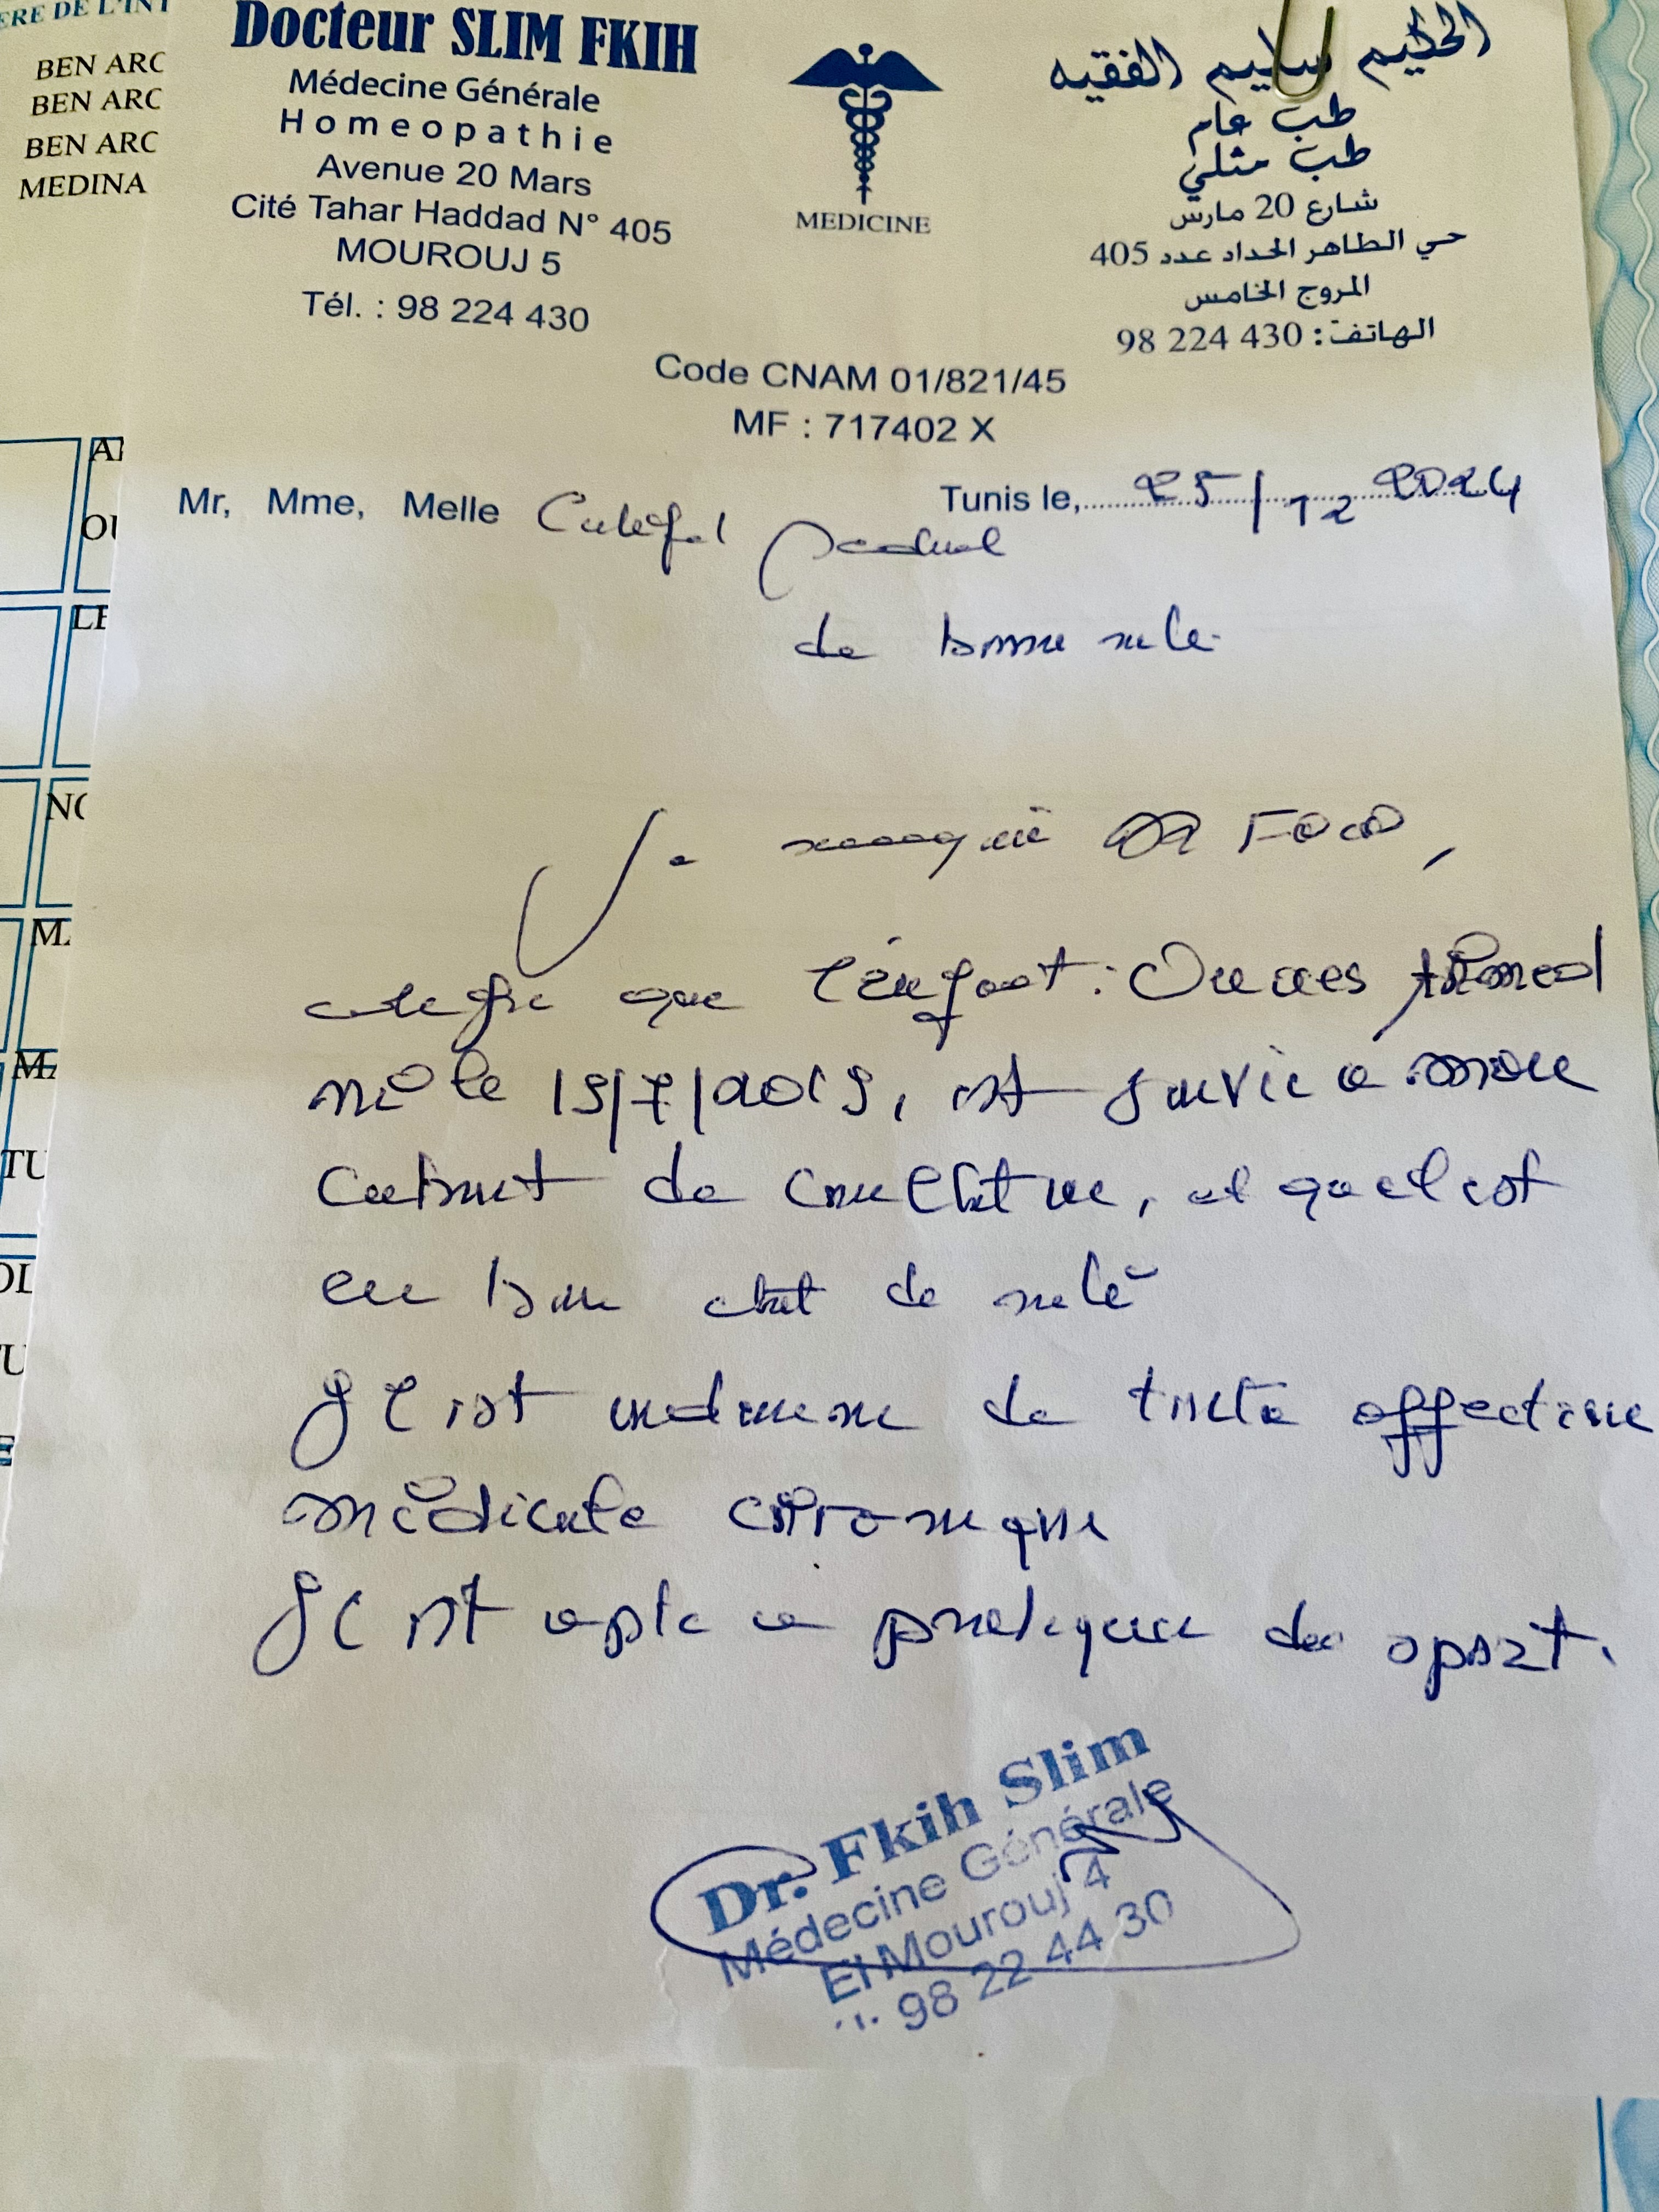 ERE DE L'INT
BEN ARC
BEN ARC
BEN ARC
MEDINA
Docteur SLIM FKIH
Médecine Générale
Homeopathie
Avenue 20 Mars
Cité Tahar Haddad N° 405
MOUROUJ 5
Tél. : 98 224 430
MEDICINE
الحكيم سليم الفقيه
طب عام
طب مثلي
شارع 20 مارس
حي الطاهر الحداد عدد 405
المروج الخامس
الهاتف : 430 224 98
Code CNAM 01/821/45
MF : 717402 X
Tunis le, 25/12 2024
Mr, Mme, Melle Certifical médical
de bonne santé
Je soussigné DR
certifie que l'enfant : Ahmed
né le 15/7/2019, est suivie a mon
cabinet de consultation, et qu'il est
en bon état de santé
Il est indemne de toute affection
médicale chronique
Il est apte a pratiquer du sport.
Dr. Fkih Slim
Médecine Générale
El Mourouj 4
98 22 44 30